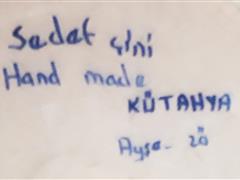 Sedef çini
Hand made
KÜTAHYA
Ayşe - zö